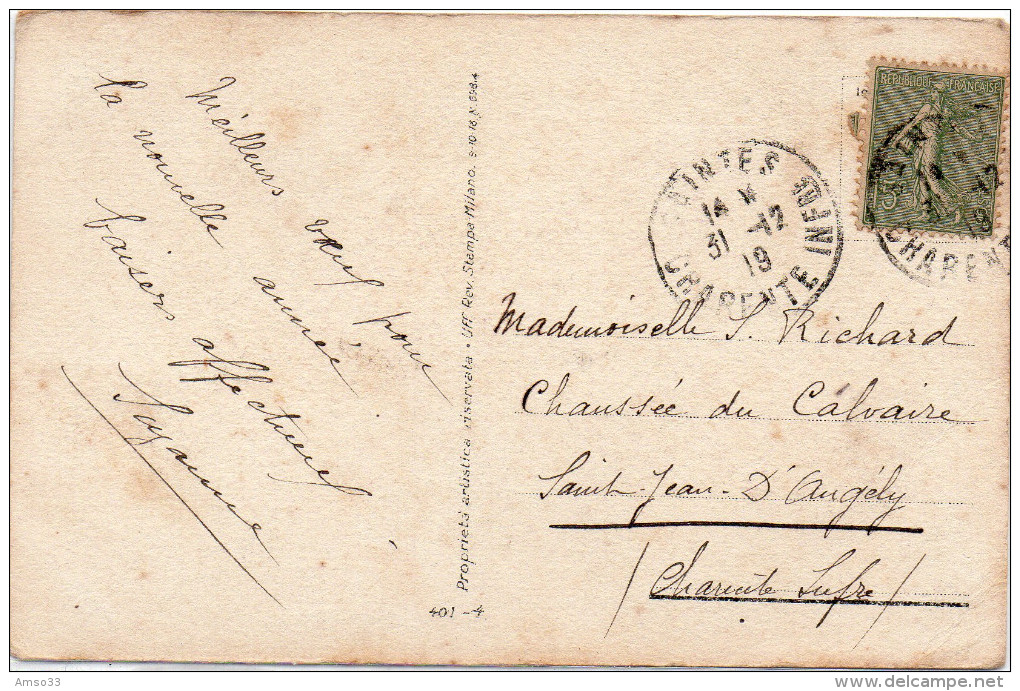 Meilleurs vœux pour
la nouvelle année.
baisers affectueux
Suzanne
Proprietà artistica riservata • Uff. Rev. Stampa Milano. 9-10-16 N. 698.4
401-4
REPUBLIQUE FRANÇAISE
SAINTES
14
31 -12
19
CHARENTE INFRE
CHARENTE
Mademoiselle S. Richard
Chaussée du Calvaire
Saint-Jean-D'Angély
(Charente Infre)
Amso33
www.delcampe.net